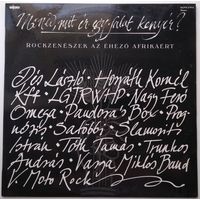 Mondd, mit ér egy falat kenyér?
ROCKZENÉSZEK AZ ÉHEZŐ AFRIKÁÉRT
Dés László · Horváth Kornél
Kft · LGT · RWHP · Nagy Feró
Omega · Pandora's Box · Prog-
nózis · Satöbbi · Slamovits
István · Tóth Tamás · Trunkos
András · Varga Miklós Band
V' Moto Rock